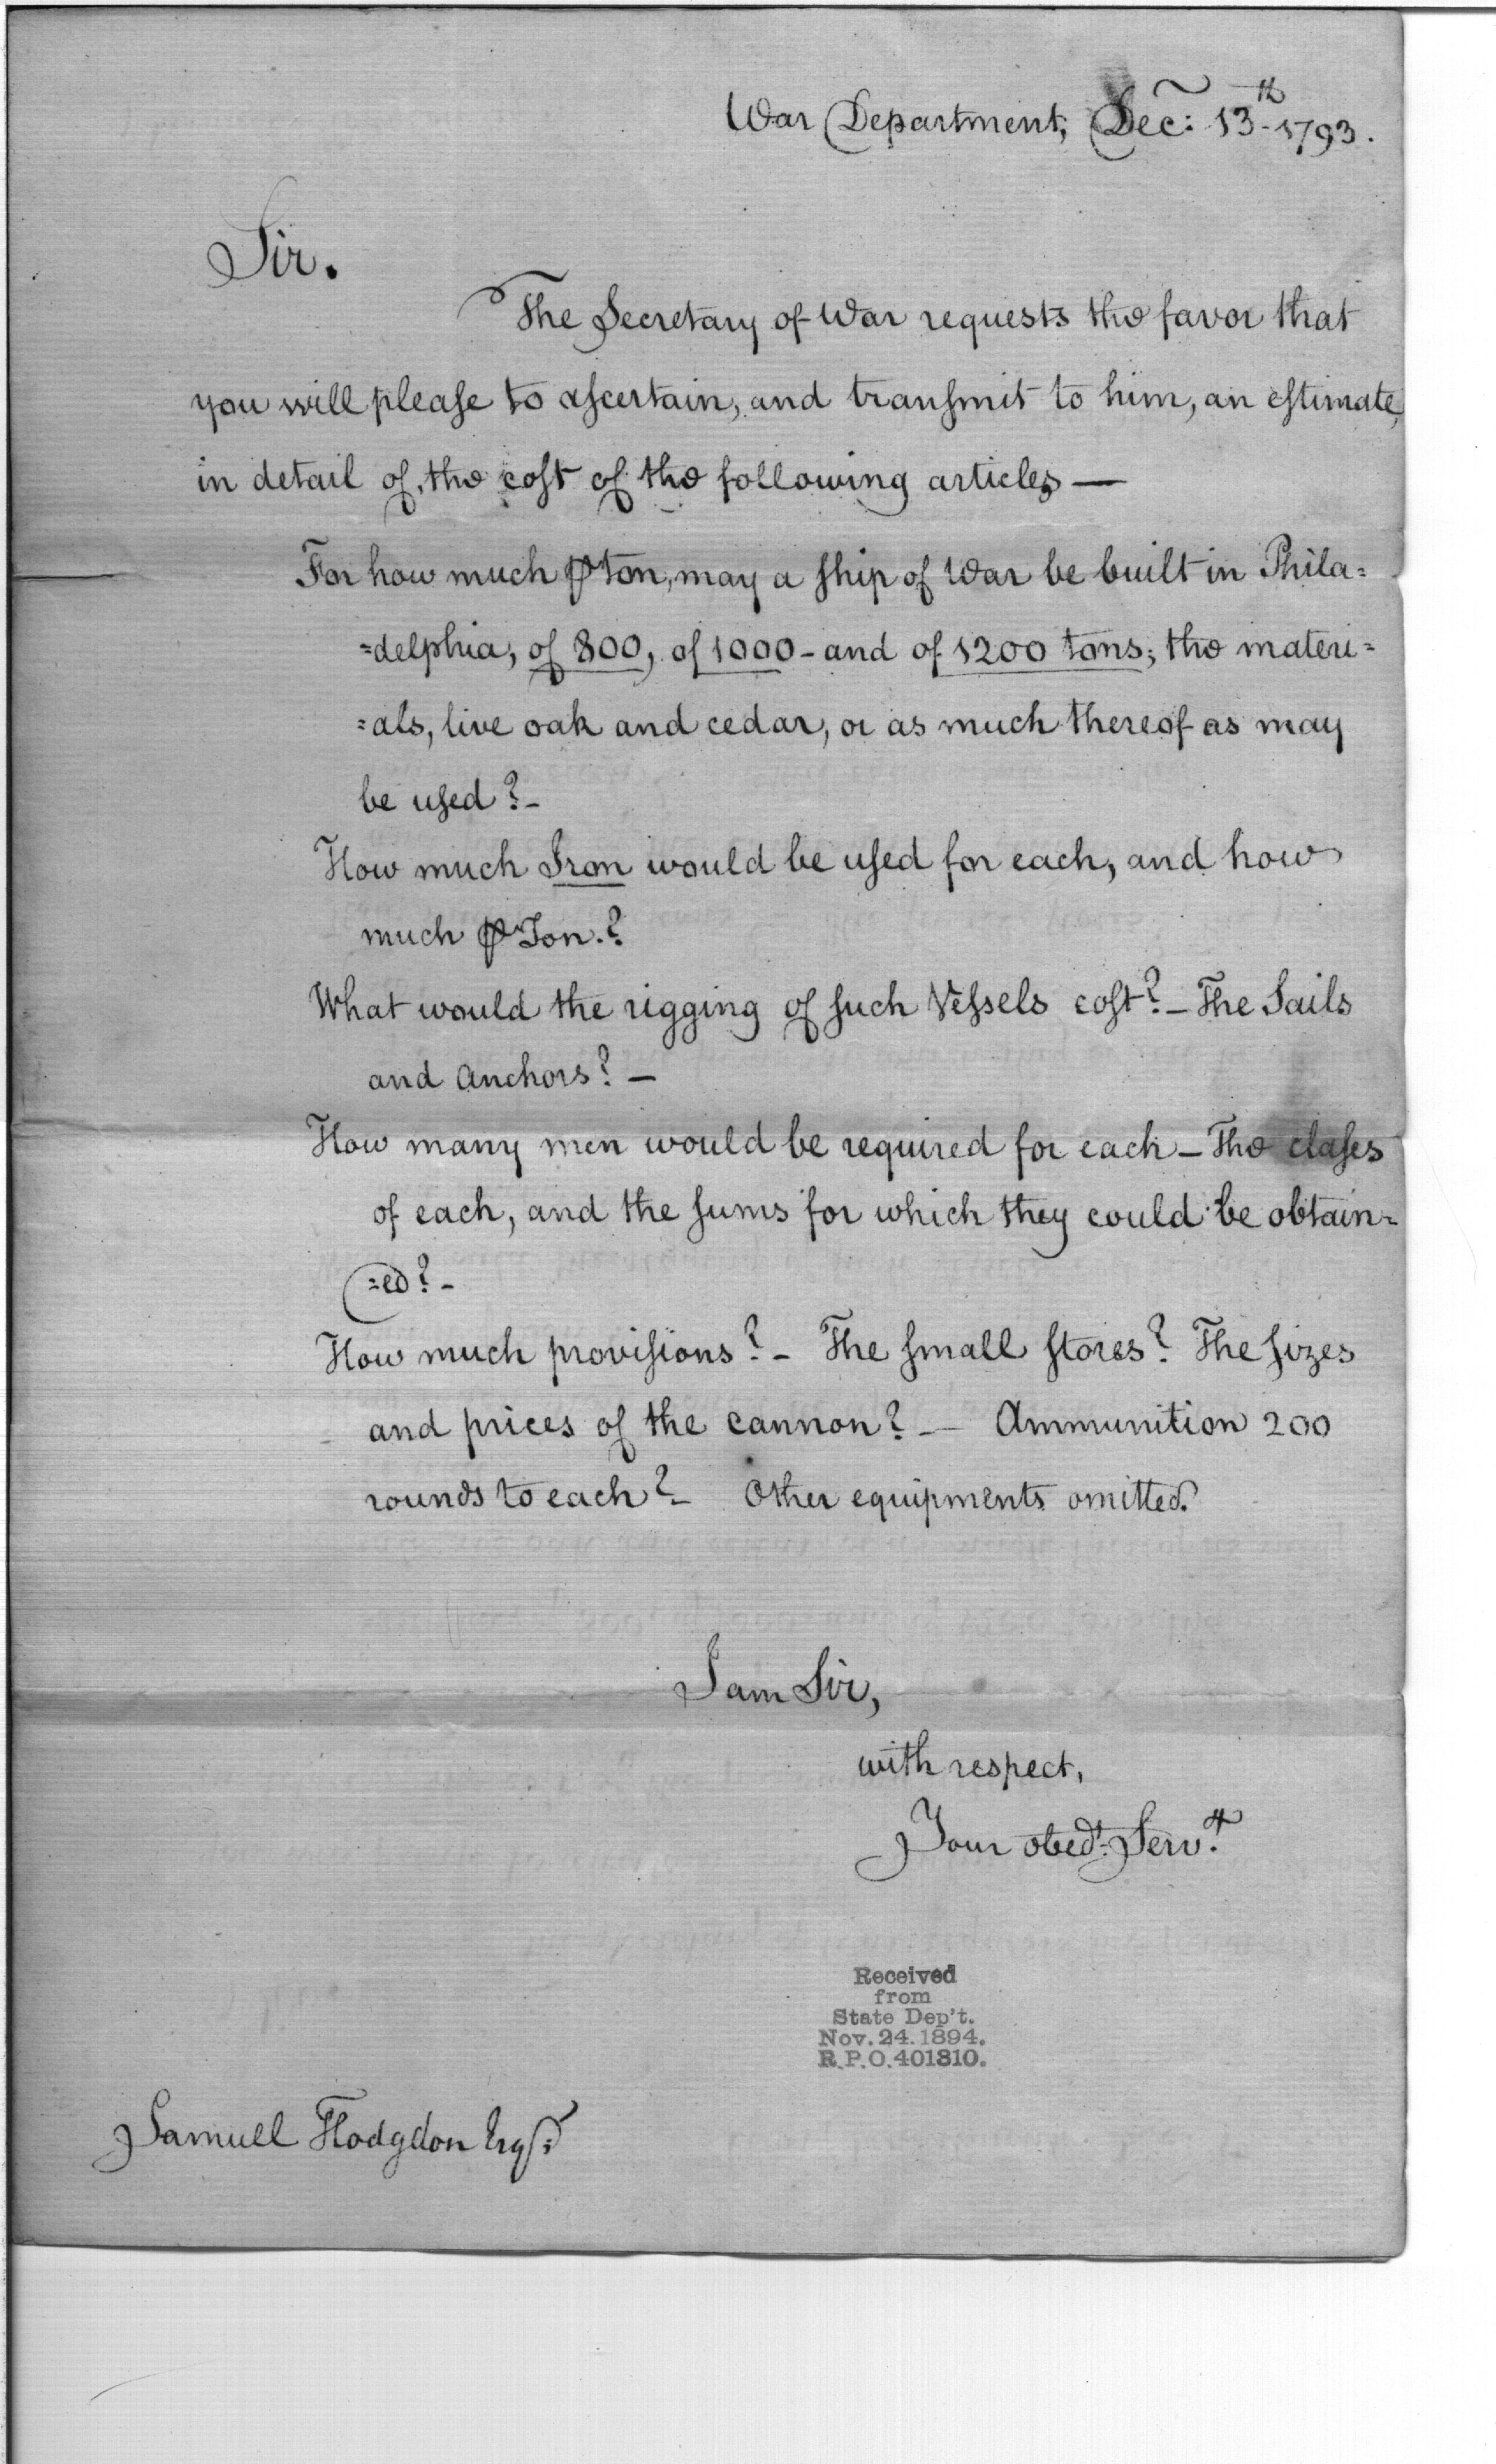 War Department, Dec: 13th 1793.
Sir.
The Secretary of War requests the favor that
you will please to ascertain, and transmit to him, an estimate,
in detail of, the cost of the following articles —
For how much ⅌ ton, may a ship of War be built in Phila=
=delphia, of 800, of 1000 - and of 1200 tons; the materi=
=als, live oak and cedar, or as much thereof as may
be used? -
How much Iron would be used for each, and how
much ⅌ Ton.?
What would the rigging of such Vessels cost? - The Sails
and Anchors? —
How many men would be required for each - The clases
of each, and the sums for which they could be obtain=
=ed? -
How much provisions? - The small stores? The sizes
and prices of the cannon? — Ammunition 200
rounds to each? - Other equipments omitted.
I am Sir,
with respect,
Your obedt. Servt.
Received
from
State Dep't.
Nov. 24. 1894.
R.P.O. 401310.
Samuel Hodgdon Esqr.